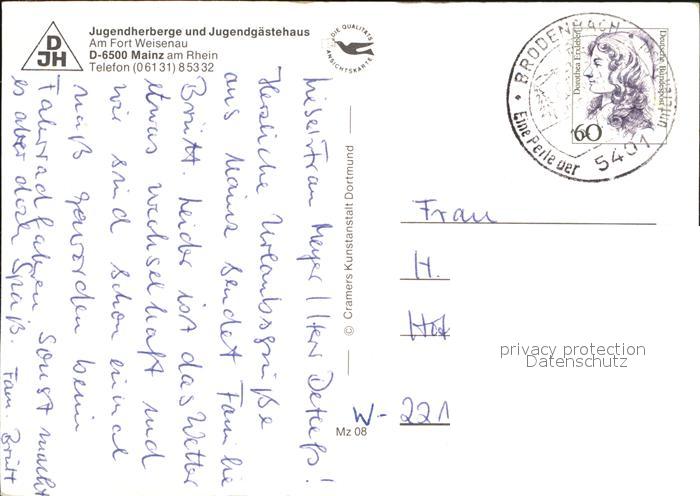 DJH
Jugendherberge und Jugendgästehaus
Am Fort Weisenau
D-6500 Mainz am Rhein
Telefon (06131) 85332
DIE QUALITÄTS
ANSICHTSKARTE
BRODENBACH
Eine Perle der
5401
Deutsche Bundespost
Dorothea Erxleben
60
Liebe Frau Meyer / Herr Detlefs!
Herzliche Urlaubsgrüße
aus Mainz sendet Familie
Brütt. Leider ist das Wetter
etwas wechselhaft und
wir sind schon einmal
naß geworden beim
Fahrradfahren, sonst macht
es aber doch Spaß. Fam. Brütt
© Cramers Kunstanstalt Dortmund
Mz 08
Frau
H.
W-221
privacy protection
Datenschutz